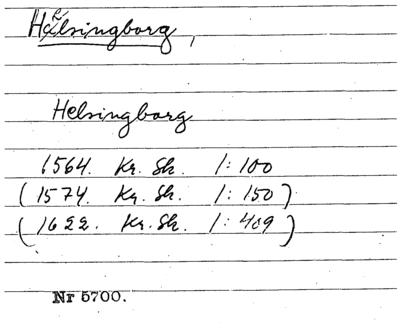 Helsingborg,
Helsingborg
1564. Kr. Sk. 1:100
(1574. Kr. Sk. 1:150)
(1622. Kr. Sk. 1:409)
Nr 5700.